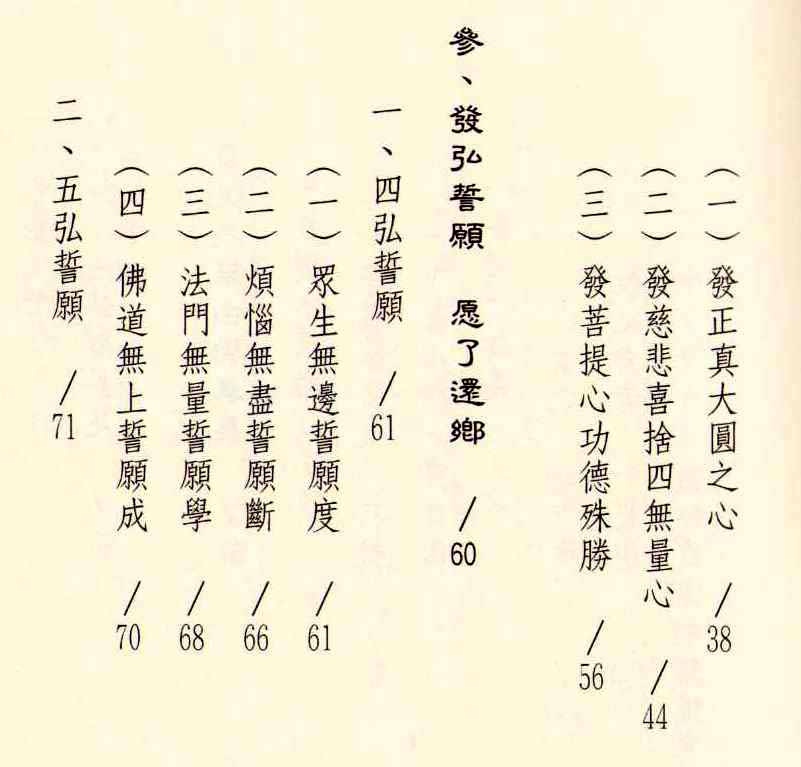 （一）發正真大圓之心 /38
（二）發慈悲喜捨四無量心 /44
（三）發菩提心功德殊勝 /56
參、發弘誓願 愿了還鄉 /60
一、四弘誓願 /61
（一）眾生無邊誓願度 /61
（二）煩惱無盡誓願斷 /66
（三）法門無量誓願學 /68
（四）佛道無上誓願成 /70
二、五弘誓願 /71